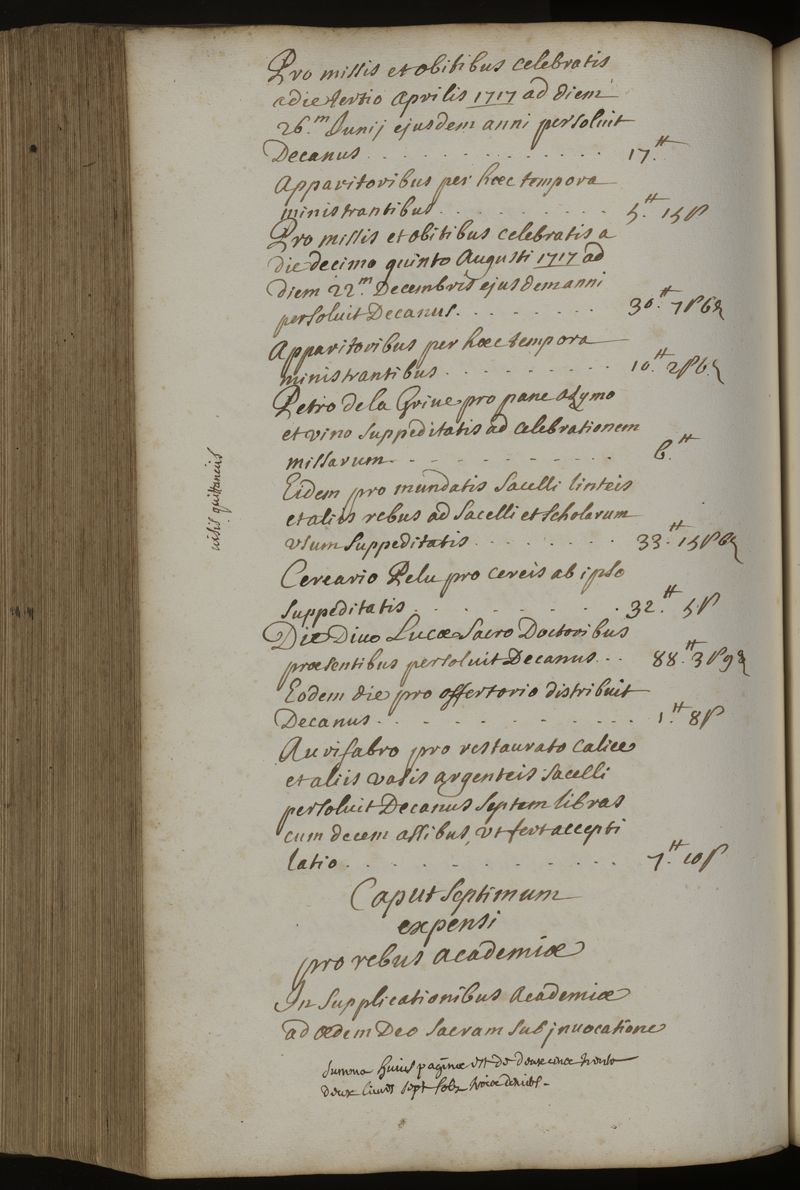 Pro missis et obitibus celebratis
a die tertio Aprilis 1717 ad diem
26.m Junij ejusdem anni persoluit
Decanus . . . . . . . . . . . . . 17.tt
Apparitoribus per hæc tempora
ministrantibus . . . . . . . . . . 5.tt 15 s
Pro missis et obitibus celebratis a
die decimo quinto Augusti 1717 ad
diem 22.m Decembris ejusdem anni
persoluit Decanus . . . . . . . . 30.tt 7 s 6 d
Apparitoribus per hæc tempora
ministrantibus . . . . . . . . . 10.tt 2 s 6 d
Petro de la Griue pro pane azymo
et vino suppeditatis ad celebrationem
missarum . . . . . . . . . 6.tt
Eidem pro mundatis Sacelli linteis
et aliis rebus ad Sacelli et Scholarum
vsum suppeditatis . . . . . . . . 33.tt 15 s 6 d
visis quittanciis
Cereario Pelu pro cereis ab ipso
suppeditatis . . . . . . . . 32.tt 5 s
Die Diuo Lucæ Sacro Doctoribus
præsentibus persoluit Decanus . . 88.tt 3 s 9 d
Eodem die pro offertorio distribuit
Decanus . . . . . . . . . . . . 1.tt 8 s
Aurifabro pro restaurato calice
et aliis vasis argenteis Sacelli
persoluit Decanus septem libras
cum decem assibus, vt fert accepti
latio . . . . . . . . . . . . . 7.tt 10 s
Caput Septimum
expensi
pro rebus Academiæ
In Supplicationibus Academiæ
ad ædem Deo Sacram sub jnuocatione
Summa huius paginæ est de deux cent trente
deux liures sept sols trois deniers -